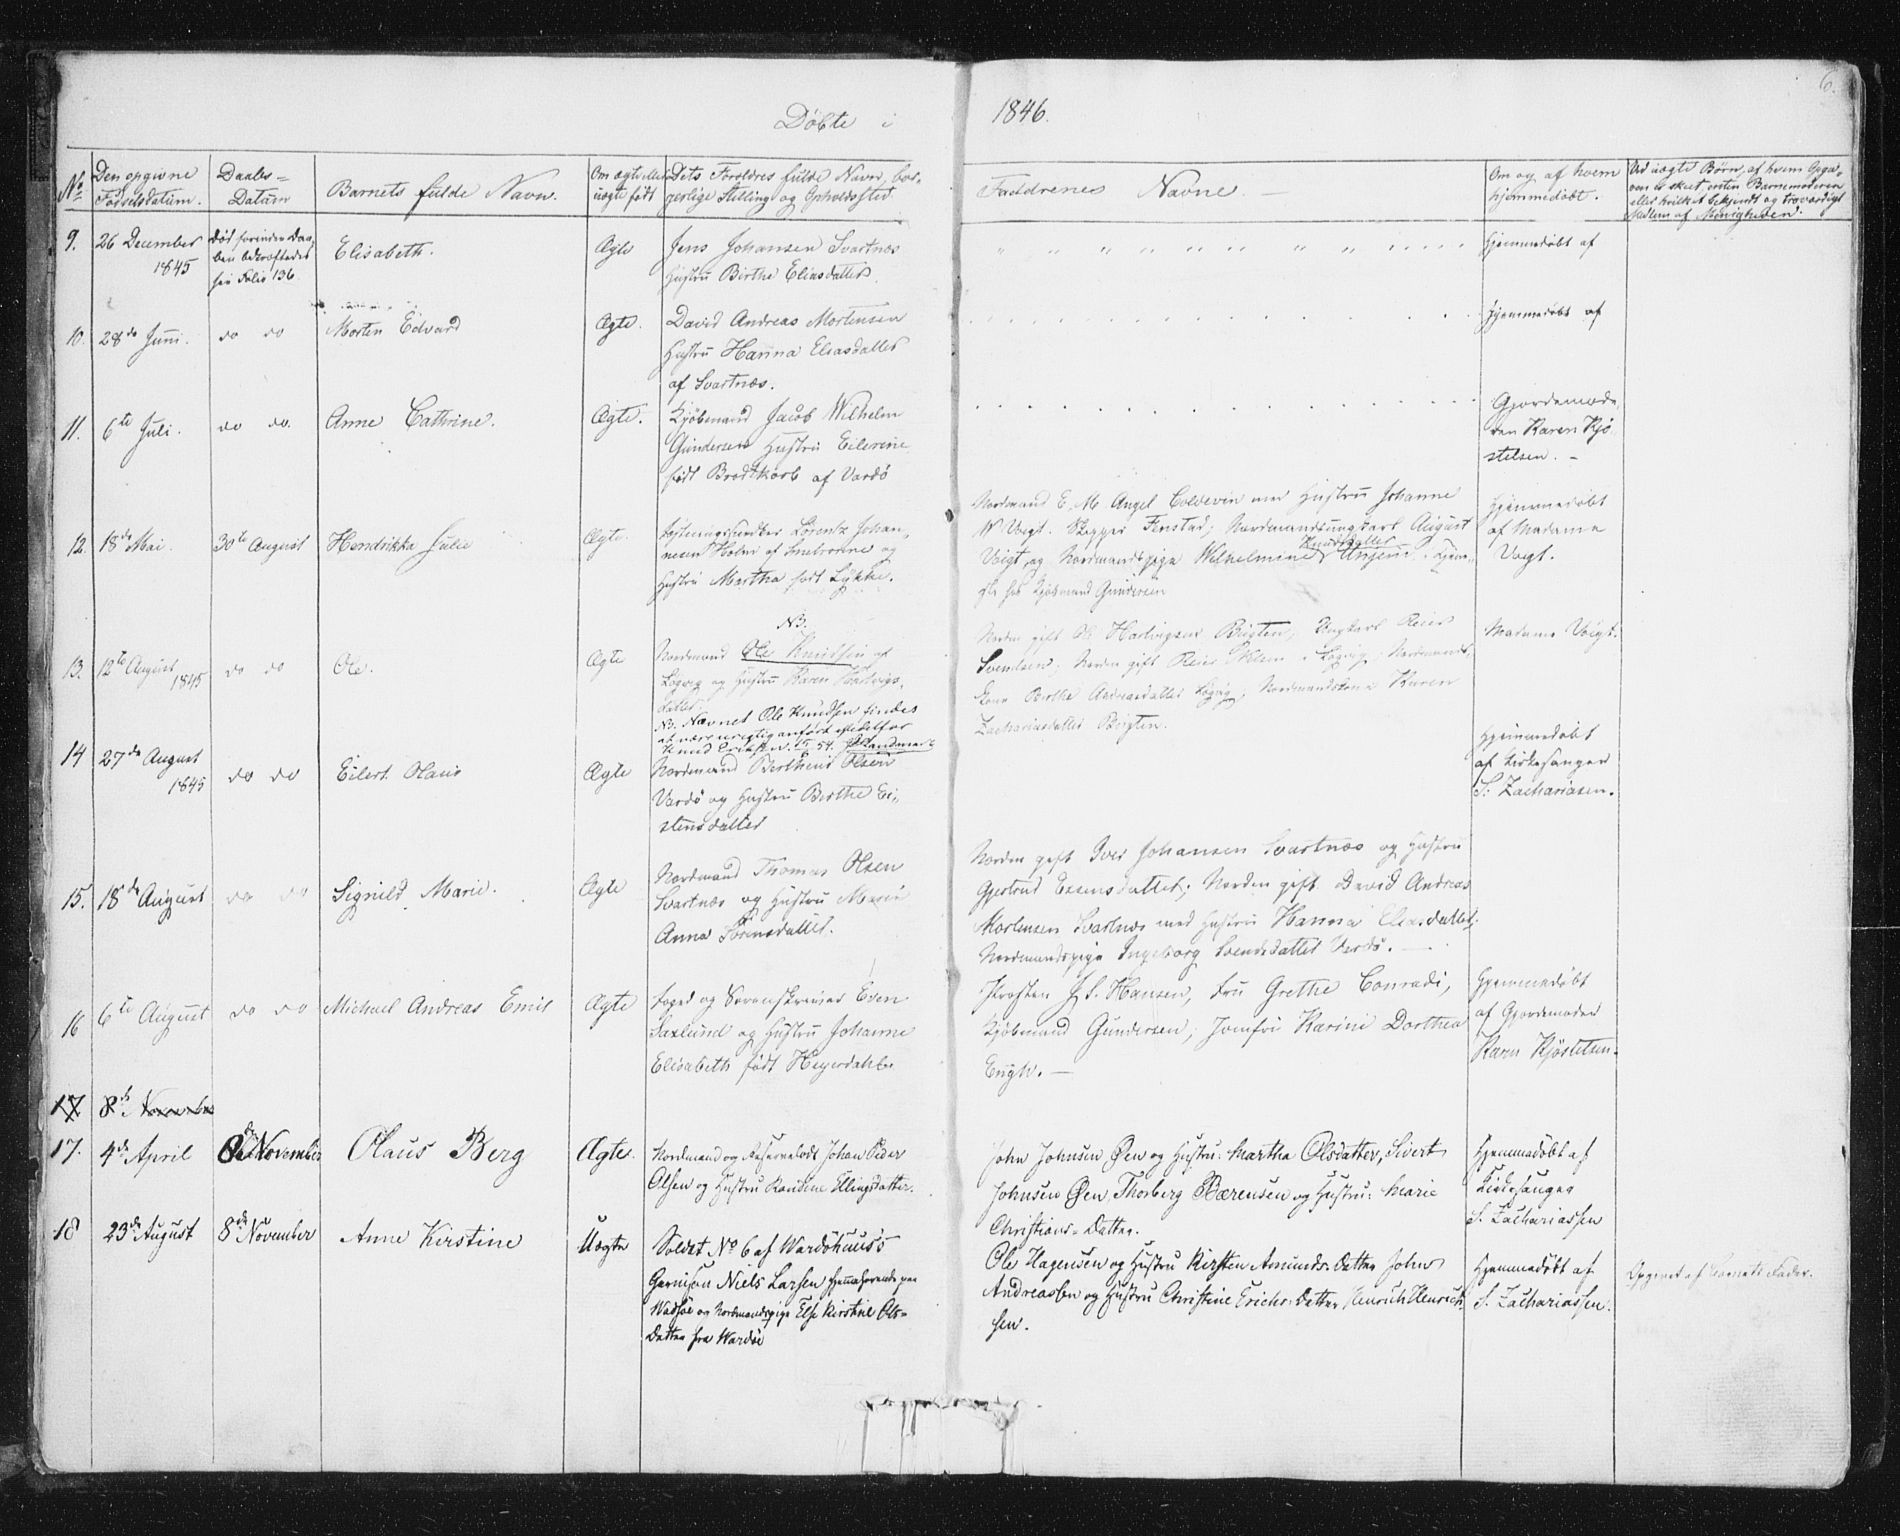 6.
Döbte i 1846.
No Den opgivne Fødselsdatum. Daabs-Datum Barnets fulde Navn. Om ægte eller uægte født Dets Forældres fulde Navn, borgerlige Stilling og Opholdssted Faddrenes Navne. — Om og af hvem hjemmedøbt. Ved uægte Børn, af hvem Opgaven er skeet, enten Barnemoderen eller hvilket bekjendt og troværdigt Medlem af Menigheden.
9. 26 December 1845 Død forinden Daaben bekræftedes see Folio 136 Elisabeth. Ægte
Jens Johansen Svartnæs
Hustru Birthe Eliasdatter.
Hjemmedøbt af
10. 28de Juni. do do Morten Edvard Ægte.
David Andreas Mortensen
Hustru Hanna Eliasdatter
af Svartnæs.
Hjemmedøbt af
11. 6te Juli. do do Anne Cathrine. Ægte.
Kjøbmand Jacob Wilhelm
Gundersen Hustru Eilerine
født Brodtkorb af Vardö
Gjordemode
ren Karen Kjö
stelsen. –
12. 18de Mai. 30te August Hendrikka Julie Ægte.
Lorentz Johan-
nesen Holm af og
Hustru Martha født Lykke.
Nordmand E. M. Angel Coldevin med Hustru Johanne
W Voigt. Skipper Finstad; Nordmandsungkarl August
Voigt, og Nordmandspige Wilhelmine Knudsdatter
hos Kjøbmand Gundersen
Hjemmedøbt
af Madame
Voigt.
13. 12te August 1845 do do Ole. Ægte
NB.
Nordmand Ole Knudsen af
og Hustru Karen Hartvigs-
datter.
NB. Nævnet Ole Knudsen findes
at være urigtig anført istedetfor
Knud Eriksen. 54. J Sandmark
Norden gift Ole Hartvigsen Brigten, Ungkarl Reier
Svendsen; Norden gift Reier Nordmands-
kone Birthe Andreasdatter Nordmandskone Karen
Zachariasdatter Brigten.
Madame Voigt.
14 27de August 1845 do do Eilert Olaus Ægte
Nordmand Bertheus Olsen
Vardö og Hustru Birthe Ei-
stensdatter
Hjemmedøbt
af Kirkesanger
S. Zachariasen.
15. 18de August do do Signild Marie. Ægte
Nordmand Thomas Olsen
Svartnæs og Hustru Marie
Anna Sörensdatter.
Norden gift Iver Johansen Svartnæs og Hustru
Gjertrud Esensdatter; Norden gift David Andreas
Mortensen Svartnæs med Hustru Hanna Eliasdatter;
Nordmandspige Ingeborg Svendsdatter Vardö. —
16 6te August do do Michael Andreas Emil Ægte
Foged og Sorenskriver Even
Saxlund og Hustru Johanne
Elisabeth født Heyerdahl
Provsten J. S. Hansen, Fru Grethe Conradi,
Kjöbmand Gundersen; Jomfru Karine Dorthea
Engh. —
Hjemmedøbt
af Gjordemoder
Karen Kjöstelsen.
17 8de November
17. 4de April 8de November Olaus Berg Ægte.
Nordmand og Reservelods Johan Peder
Olsen og Hustru Karoline Ellingsdatter.
John Johnsen Øen og Hustru: Martha Olsdatter, Sivert
Johnsen Øen, Thorberg Bærensen og Hustru: Marie
Christians-Datter.
Hjemmedøbt af
Kirkesanger
S. Zachariassen
18 23de August 8de November Anne Kirstine Uægte
Soldat No 6 af Wardöhuuss
Garnison Niels Larsen Hjemhørende paa
Wadsøe og Nordmandspige Else Kirstine Ols-
Datter fra Wardöe
Ole Hagensen og Hustru Kirsten Amunds-Datter John
Andreassen og Hustru Christine Erichs-Datter, Henrich Henrich
sen.
Hjemmedøbt af
S. Zachariassen.
Opgivet af Barnets Fader.